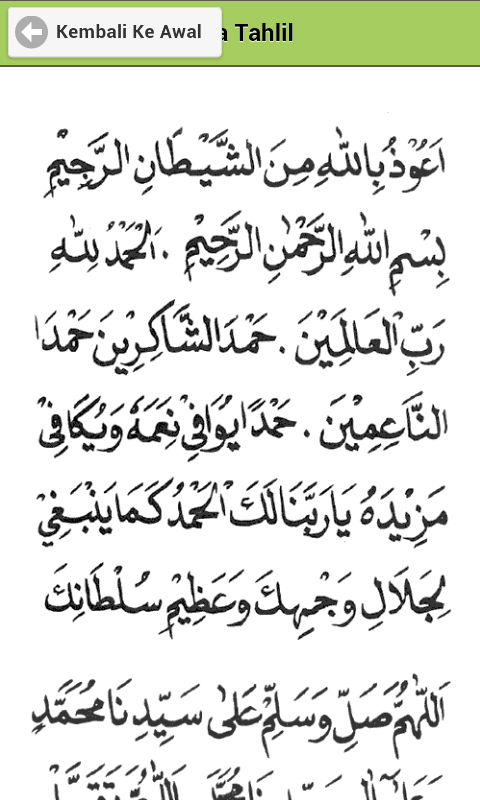 Kembali Ke Awal
a Tahlil
اَعُوْذُ بِاللهِ مِنَ الشَّيْطَانِ الرَّجِيْمِ
بِسْمِ اللهِ الرَّحْمٰنِ الرَّحِيْمِ . اَلْحَمْدُ لِلّٰهِ
رَبِّ الْعَالَمِيْنَ . حَمْدَ الشَّاكِرِيْنَ حَمْدَا
النَّاعِمِيْنَ . حَمْدًا يُوَافِيْ نِعَمَهُ وَيُكَافِىْ
مَزِيْدَهُ يَارَبَّنَالَكَ الْحَمْدُ كَمَا يَنْبَغِيْ
لِجَلَالِ وَجْهِكَ وَعَظِيْمِ سُلْطَانِكَ
اَللّٰهُمَّ صَلِّ وَسَلِّمْ عَلٰى سَيِّدِنَا مُحَمَّدٍ